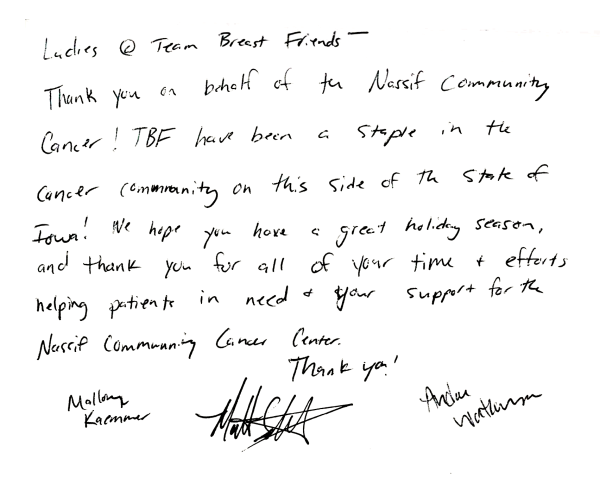 Ladies @ Team Breast Friends —
Thank you on behalf of the Nassif Community
Cancer! TBF have been a staple in the
cancer community on this side of the State of
Iowa! We hope you have a great holiday season,
and thank you for all of your time + efforts
helping patients in need + your support for the
Nassif Community Cancer Center.
Thank you!
Mallory
Kaemmer
Matt